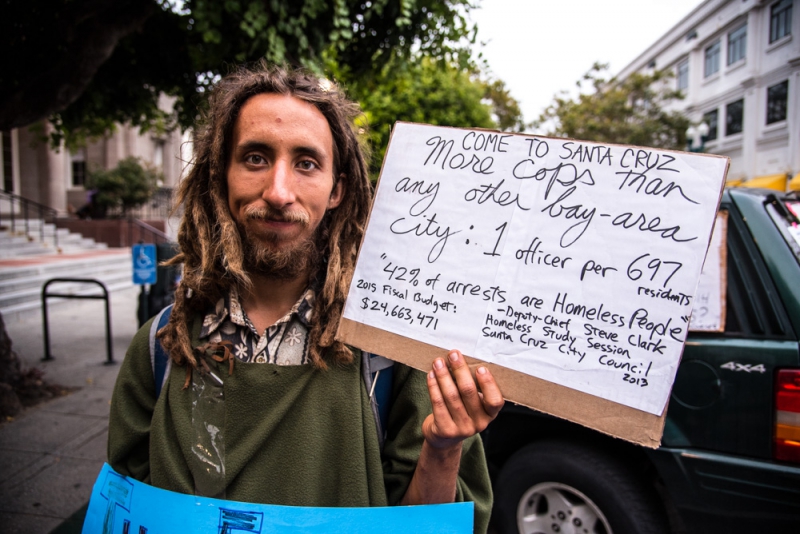 COME TO SANTA CRUZ
More cops than
any other bay-area
city: 1 officer per 697
residents
"42% of arrests are Homeless People"
-Deputy-Chief Steve Clark
Homeless Study Session
Santa Cruz City Council
2013
2015 Fiscal Budget:
$24,663,471
4X4